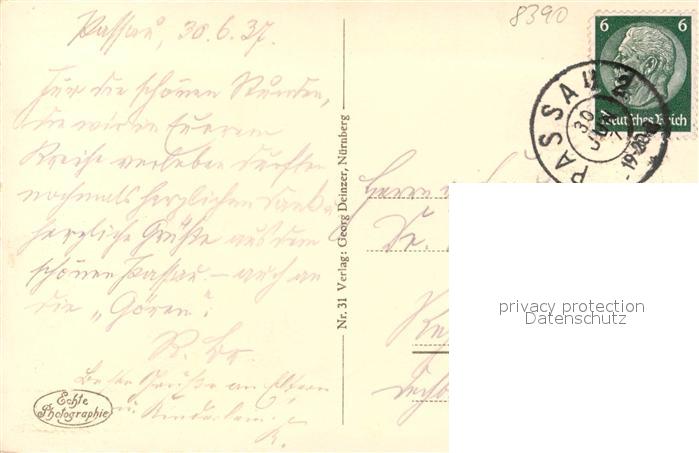 8390
Passau, 30.6.37.
Für die schönen Stunden,
die wir in Eurem
Kreise verleben durften
nochmals herzlichen Dank u.
herzliche Grüße aus dem
schönen Passau – auch an
die „Gören“!
Beste Grüße an Eltern
u.
K.
Echte
Photographie
Nr. 31 Verlag: Georg Deinzer, Nürnberg
6 6
Deutsches Reich
PASSAU 2
30
JUN
Herrn u.
Dr.
privacy protection
Datenschutz